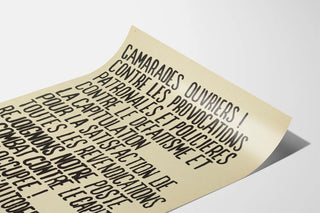 CAMARADES OUVRIERS !
CONTRE LES PROVOCATIONS
PATRONALES ET POLICIÈRES
CONTRE LE LÉGALISME ET
LA CAPITULATION
POUR LA SATISFACTION DE
TOUTES LES REVENDICATIONS
REJOIGNONS NOTRE POSTE
COMBAT CONTRE L'ÉCART